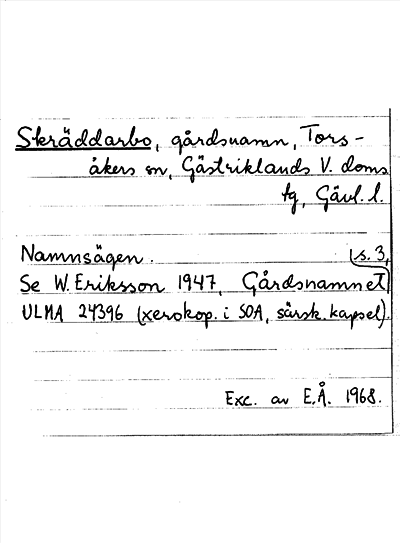 Skräddarbo, gårdsnamn, Tors-
åkers sn, Gästriklands V. doms
tg, Gävl. l.
Namnsägen. s. 3,
Se W. Eriksson 1947, Gårdsnamnet
ULMA 24396 (xerokop. i SOA, särsk. kapsel).
Exc. av E.Å. 1968.